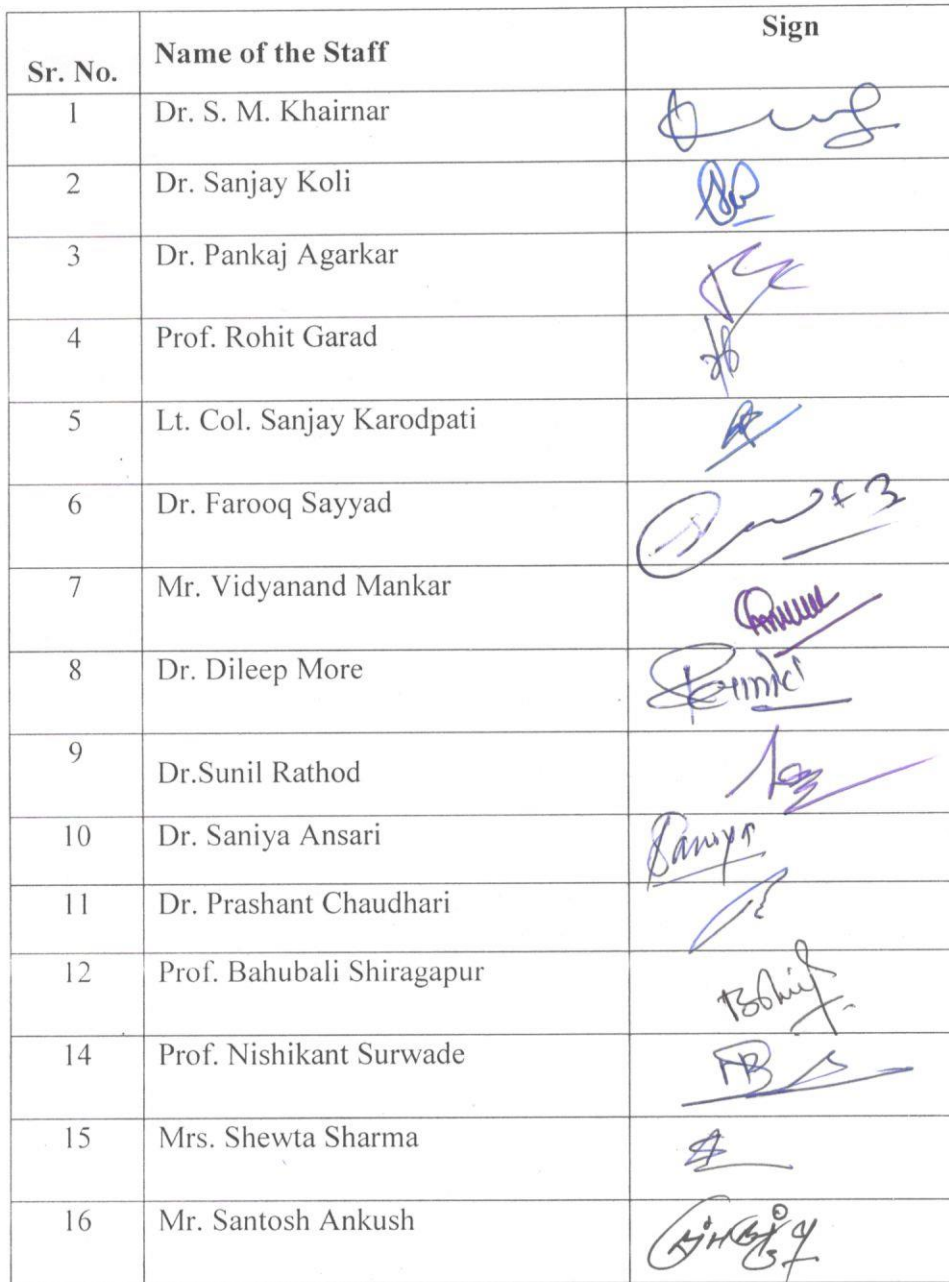 Sr. No. Name of the Staff Sign
1 Dr. S. M. Khairnar
2 Dr. Sanjay Koli
3 Dr. Pankaj Agarkar
4 Prof. Rohit Garad
5 Lt. Col. Sanjay Karodpati
6 Dr. Farooq Sayyad
7 Mr. Vidyanand Mankar
8 Dr. Dileep More
9 Dr.Sunil Rathod
10 Dr. Saniya Ansari Saniya
11 Dr. Prashant Chaudhari
12 Prof. Bahubali Shiragapur
14 Prof. Nishikant Surwade
15 Mrs. Shewta Sharma
16 Mr. Santosh Ankush